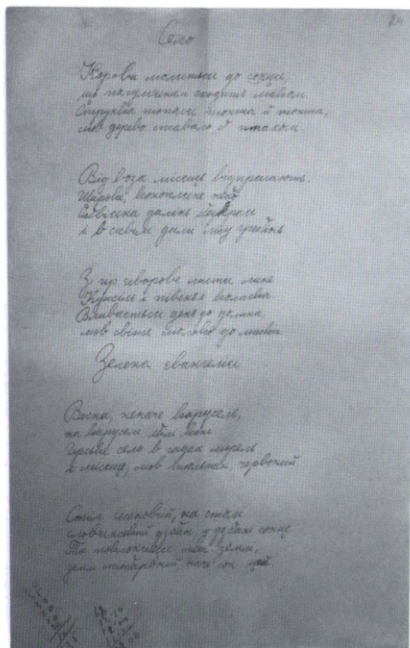 Село
Корови моляться до сонця,
що полумяним сходить маком.
Струнка тополя тонша й тонша,
мов дерево ставало б птахом.
Від воза місяць відпрягають.
Широке, конопляне небо
далінь
і в сивім димі лісу гребінь
З гір яворове листя лине
Кужіль і півень і колиска
Вливається день до долини,
мов свіже молоко до миски
Зелена євангелія
Весна, неначе карусель,
на каруселі білі коні
Гірське село в садах морель
і місяць, мов тюльпан, червоний
Стіл ясеновий, на столі
словянський дзбан, у дзбані сонце
Ти поклоняйся лиш землі,
землі стобарвній, наче сон цей